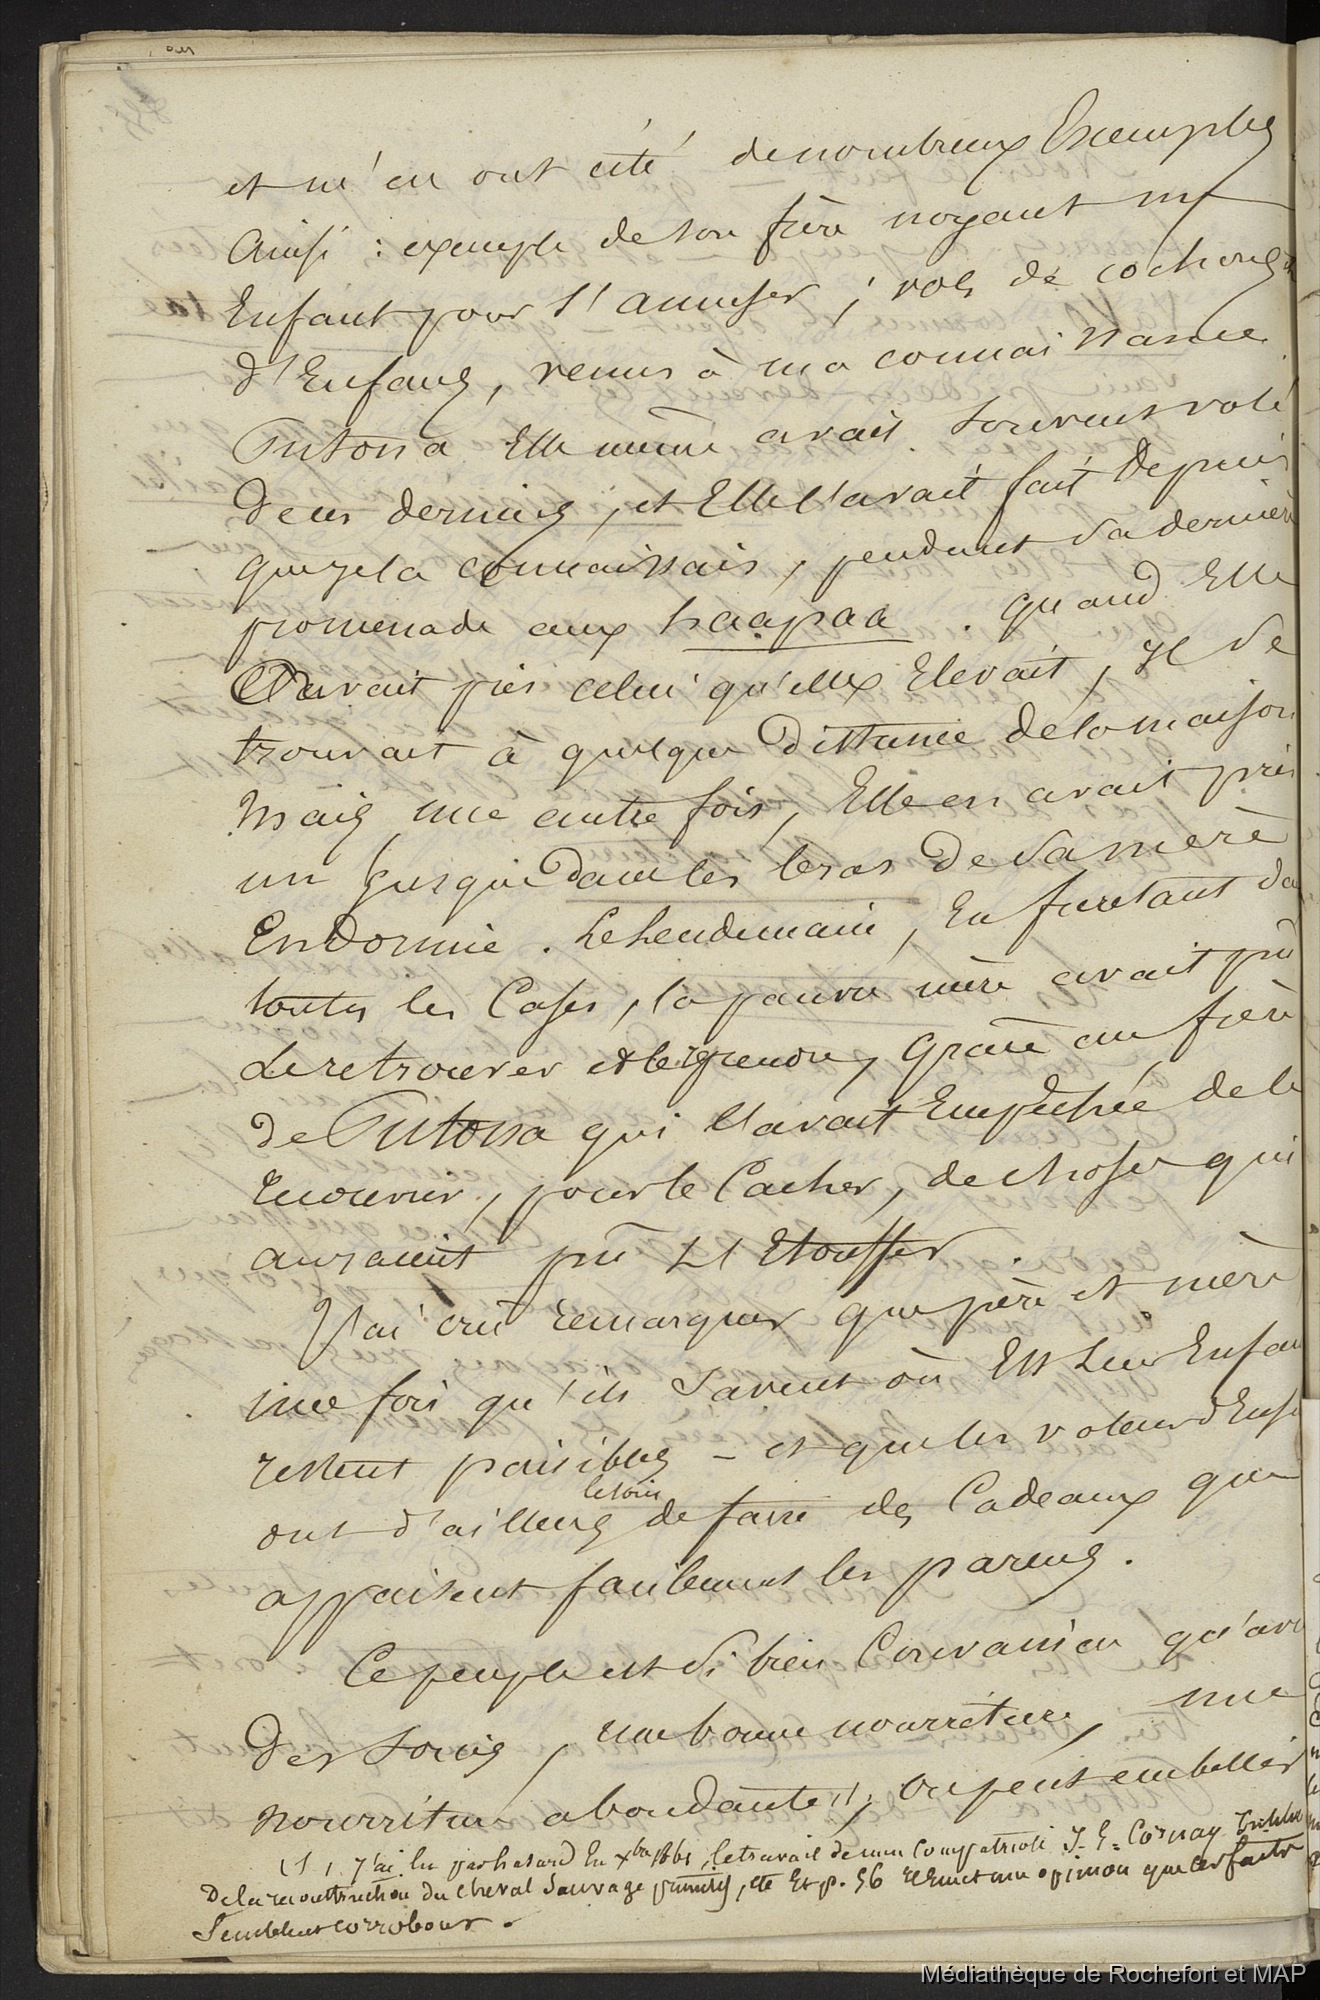 et m'en ont cité de nombreux Exemples
Ainsi : exemple de son frère noyant un
Enfant pour s'amuser ; vols de cochons et
d'Enfans, venus à ma connaissance.
Tutona Elle même avait souvent volé
de ces derniers, et Elle l'avait fait Depuis
que je la connaissais, pendant sa dernière
promenade aux haapaa. quand Elle
avait pris celui qu'elle Elevait, Il se
trouvait à quelque distance de la maison
Mais une autre fois, Elle en avait pris
un jusque dans les bras de sa mère
Endormie. Le lendemain, En furetant da
toutes les Cases, la pauvre mère avait pu
le retrouver et le reprendre, Grâce au frère
de Tutona qui l'avait Empêchée de le
recouvrir, pour le Cacher, de choses qui
auraient pu l'Etouffer.
J'ai cru remarquer que père et mère
une fois qu'ils savent où Est leur Enfan
restent paisibles - et que les voleurs d'Enfa
ont d'ailleurs le soin de faire des Cadeaux que
appaisent facilement les parens.
Ce peuple est si bien Convaincu qu'ave
Des soins, une bonne nourriture, une
nourriture abondante (1), on peut embellir
(1) J'ai lu par hasard En Xbre 1861, le travail de mon compatriote J. E. Cornay Intitulé
De la reconstruction du cheval sauvage primitif, etc Et p. 56 il émet une opinion que ces faits
semblent corroborer.
Médiathèque de Rochefort et MAP